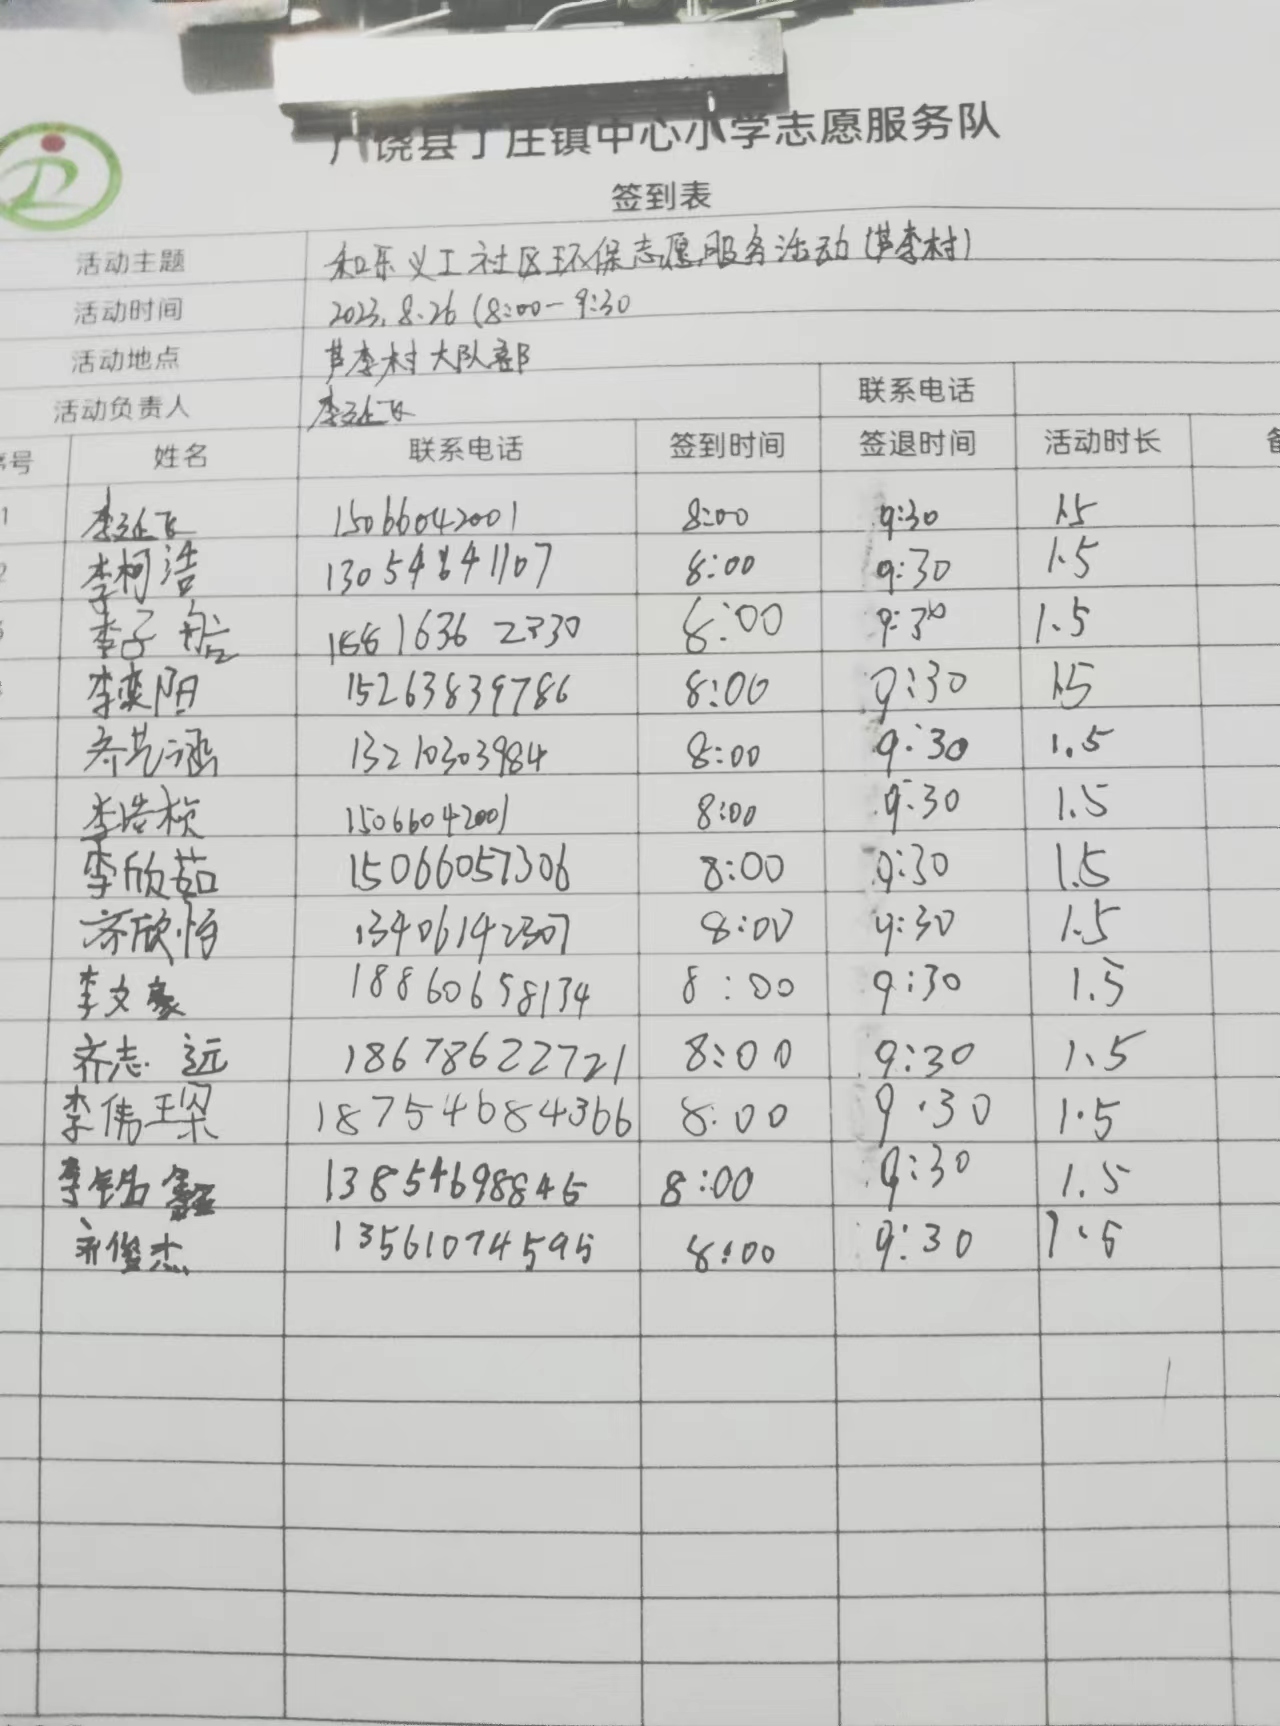 广饶县丁庄镇中心小学志愿服务队
签到表
活动主题 和乐义工社区环保志愿服务活动(芦李村)
活动时间 2023.8.26 (8:00-9:30
活动地点 芦李村大队部
活动负责人 李延飞 联系电话
序号 姓名 联系电话 签到时间 签退时间 活动时长 备
1 李延飞 15066042001 8:00 9:30 1.5
2 李柯浩 13054641107 8:00 9:30 1.5
3 李子船 16616362330 8:00 9:30 1.5
李奕阳 15263839786 8:00 9:30 1.5
齐艺涵 13210303984 8:00 9:30 1.5
李浩桢 15066042001 8:00 9:30 1.5
李欣茹 15066057306 8:00 9:30 1.5
齐欣怡 13406142307 8:00 9:30 1.5
李文豪 18860658134 8:00 9:30 1.5
齐志远 18678622721 8:00 9:30 1.5
李伟梁 18754684366 8:00 9:30 1.5
李铭鑫 13854698845 8:00 9:30 1.5
齐俊杰 13561074595 8:00 9:30 1.5